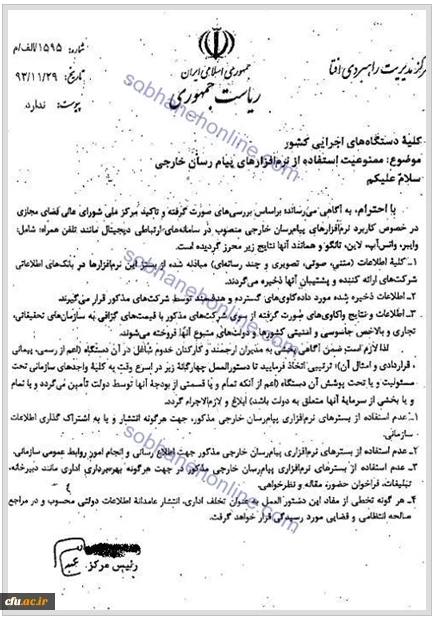 شماره: ۱۵۹۵/الف/م
تاریخ: ۹۳/۱۱/۲۹
پیوست: ندارد.
جمهوری اسلامی ایران
ریاست جمهوری
مرکز مدیریت راهبردی افتا
کلیهٔ دستگاه‌های اجرایی کشور
موضوع: ممنوعیت استفاده از نرم‌افزارهای پیام رسان خارجی
سلام علیکم
با احترام، به آگاهی می‌رساند؛ براساس بررسی‌های صورت گرفته و تاکید مرکز ملی شورای عالی فضای مجازی
در خصوص کاربرد نرم‌افزارهای پیام‌رسان خارجی منصوب در سامانه‌های ارتباطی دیجیتال مانند تلفن همراه، شامل:
وایبر، واتس‌آپ، لاین، تانگو و همانند آنها نتایج زیر محرز گردیده است.
۱- کلیهٔ اطلاعات (متنی، صوتی، تصویری و چند رسانه‌ای) مبادله شده از بستر این نرم‌افزارها در بانک‌های اطلاعاتی
شرکت‌های ارائه کننده و پشتیبان آنها ذخیره می‌گردند.
۲- اطلاعات ذخیره شده مورد داده‌کاوی‌های گسترده و هدفمند توسط شرکت‌های مذکور قرار می‌گیرند.
۳- اطلاعات و نتایج واکاوی‌های صورت گرفته از سوی شرکت‌های مذکور با قیمت‌های گزافی به سازمان‌های تحقیقاتی،
تجاری و بالاخص جاسوسی و امنیتی کشورها و دولت‌های متبوع آنها فروخته می‌شوند.
لذا لازم است ضمن آگاهی بخشی به مدیران ارجمند و کارکنان خدوم شاغل در آن دستگاه (اعم از رسمی، پیمانی
، قراردادی و امثال آن) ترتیبی اتخاذ فرمایید تا دستورالعمل چهارگانهٔ زیر در اسرع وقت به کلیهٔ واحدهای سازمانی تحت
مسئولیت و یا تحت پوشش آن دستگاه (اعم از آنکه تمام و یا قسمتی از بودجهٔ آنها توسط دولت تأمین می‌گردد و یا تمام
و یا بخشی از سرمایهٔ آنها متعلق به دولت باشد) ابلاغ و لازم‌الاجراء گردد.
۱- عدم استفاده از بسترهای نرم‌افزاری پیام‌رسان خارجی مذکور، جهت هرگونه انتشار و یا به اشتراک گذاری اطلاعات
سازمانی.
۲- عدم استفاده از بسترهای نرم‌افزاری پیام‌رسان خارجی مذکور جهت اطلاع رسانی و انجام امور روابط عمومی سازمانی.
۳- عدم استفاده از بسترهای نرم‌افزاری پیام‌رسان خارجی مذکور در جهت هرگونه بهره‌برداری اداری مانند دبیرخانه،
تبلیغات، فراخوان حضور، مقاله و نظرخواهی.
۴- هر گونه تخطی از مفاد این دستور العمل به عنوان تخلف اداری، انتشار عامدانهٔ اطلاعات دولتی محسوب و در مراجع
صالحه انتظامی و قضایی مورد رسیدگی قرار خواهد گرفت.
رئیس مرکز
sobhanehonline.com
sobhanehonline.com
sobhanehonline.com
sobhanehonline.com
cfu.ac.ir